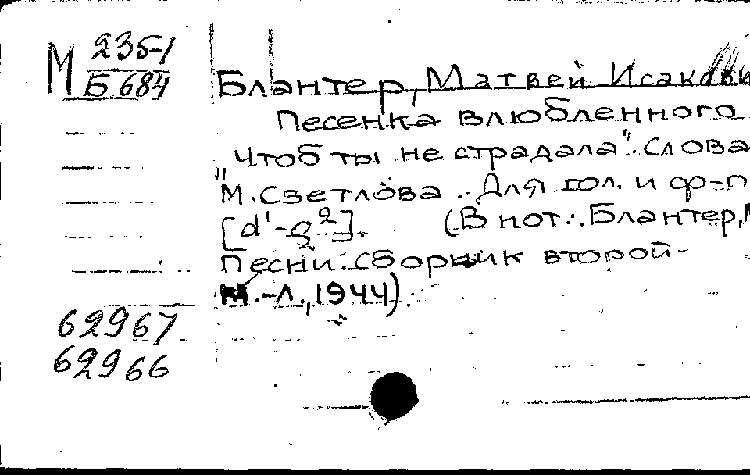 М 235-1
Б 684
Блантер, Матвей Исакови
Песенка влюбленного
"Чтоб ты не страдала". Слова
М. Светлова.. Для гол. и ф-п
[d'-g²]. (В нот.: Блантер, М
Песни. Сборник второй
М.-Л., 1944)
62967
62966